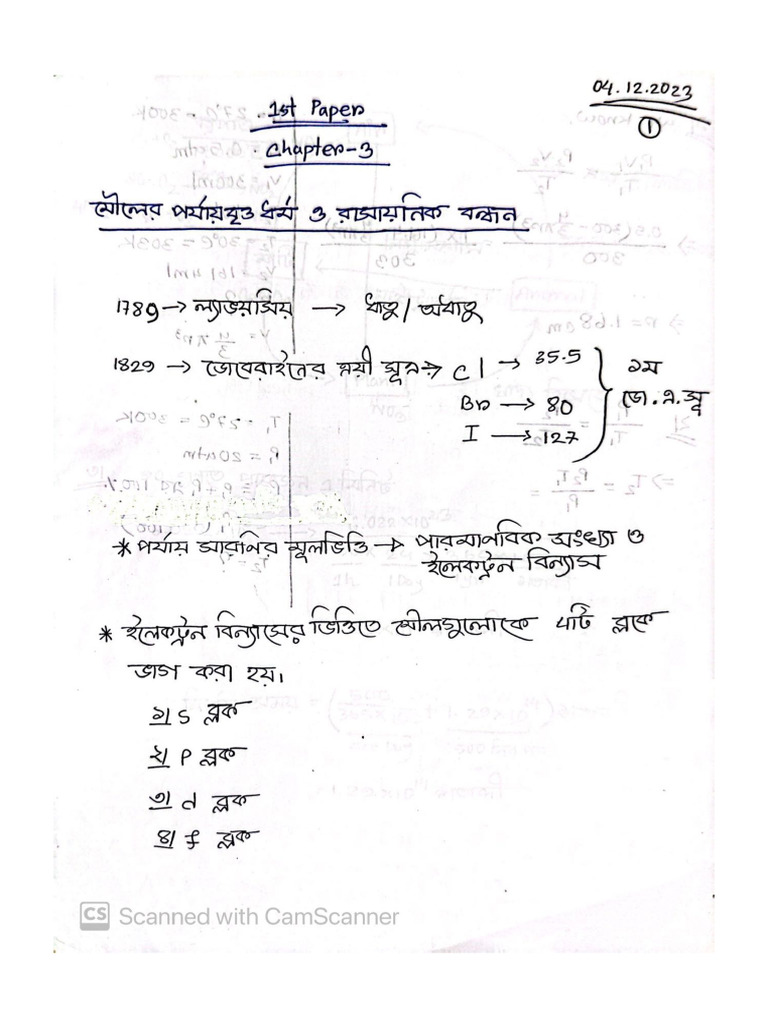 04.12.2023
①
1st Paper
Chapter-3
মৌলের পর্যায়বৃত্ত ধর্ম ও রাসায়নিক বন্ধন
1789 → ল্যাভয়সিয় → ধাতু/অধাতু
1829 → ডোবেরাইনের ত্রয়ী সূত্র → Cl → 35.5
Br → 80
I → 127
১ম
ডো.ত্র.সূ
* পর্যায় সারণির মূলভিত্তি → পারমাণবিক সংখ্যা ও
ইলেকট্রন বিন্যাস
* ইলেকট্রন বিন্যাসের ভিত্তিতে মৌলগুলোকে ৪টি ব্লকে
ভাগ করা হয়।
১) s ব্লক
২) p ব্লক
৩) d ব্লক
৪) f ব্লক
CS Scanned with CamScanner